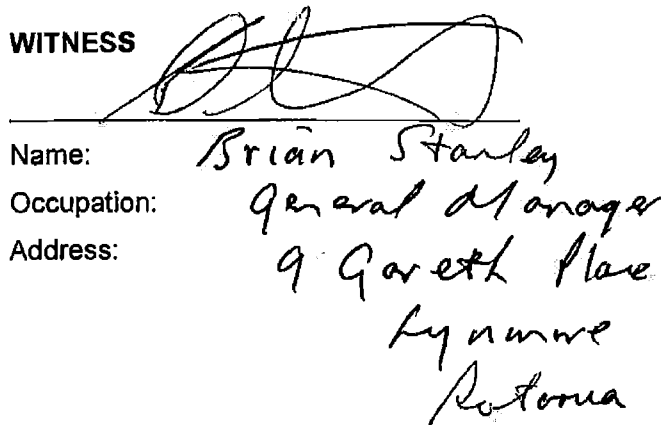 WITNESS
Name: Brian Stanley
Occupation: General Manager
Address: 9 Gareth Place
Lynmore
Rotorua